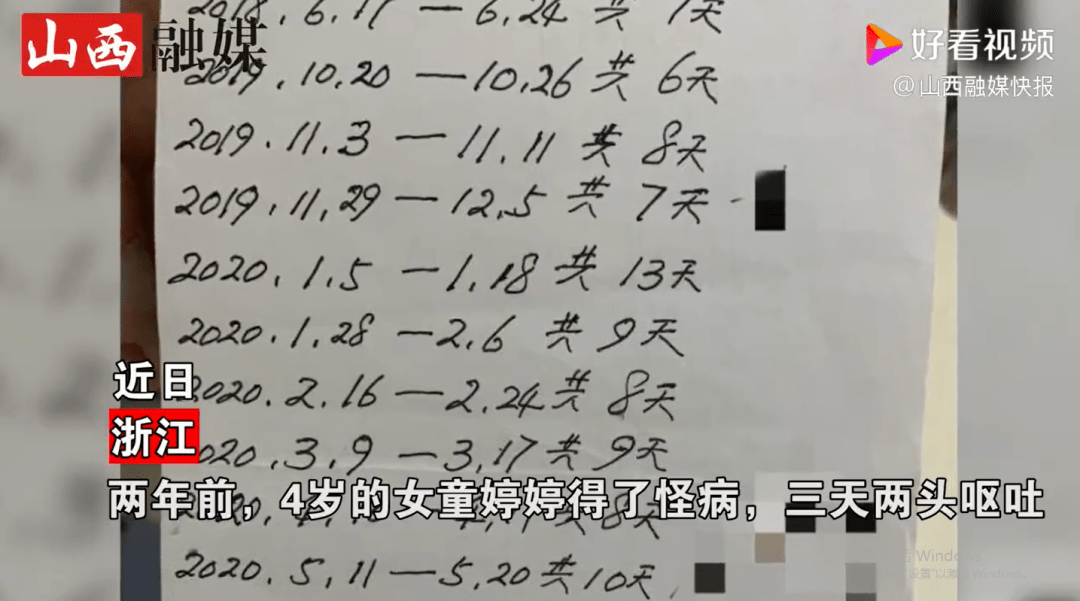 山西融媒
好看视频
@山西融媒快报
2018.6.17—6.24 共 7天
2019.10.20—10.26 共 6天
2019.11.3—11.11 共 8天
2019.11.29—12.5 共 7天
2020.1.5—1.18 共 13天
2020.1.28—2.6 共 9天
2020.2.16—2.24 共 8天
2020.3.9—3.17 共 9天
共 8天
2020.5.11—5.20 共 10天
近日
浙江
两年前，4岁的女童婷婷得了怪病，三天两头呕吐
Windows